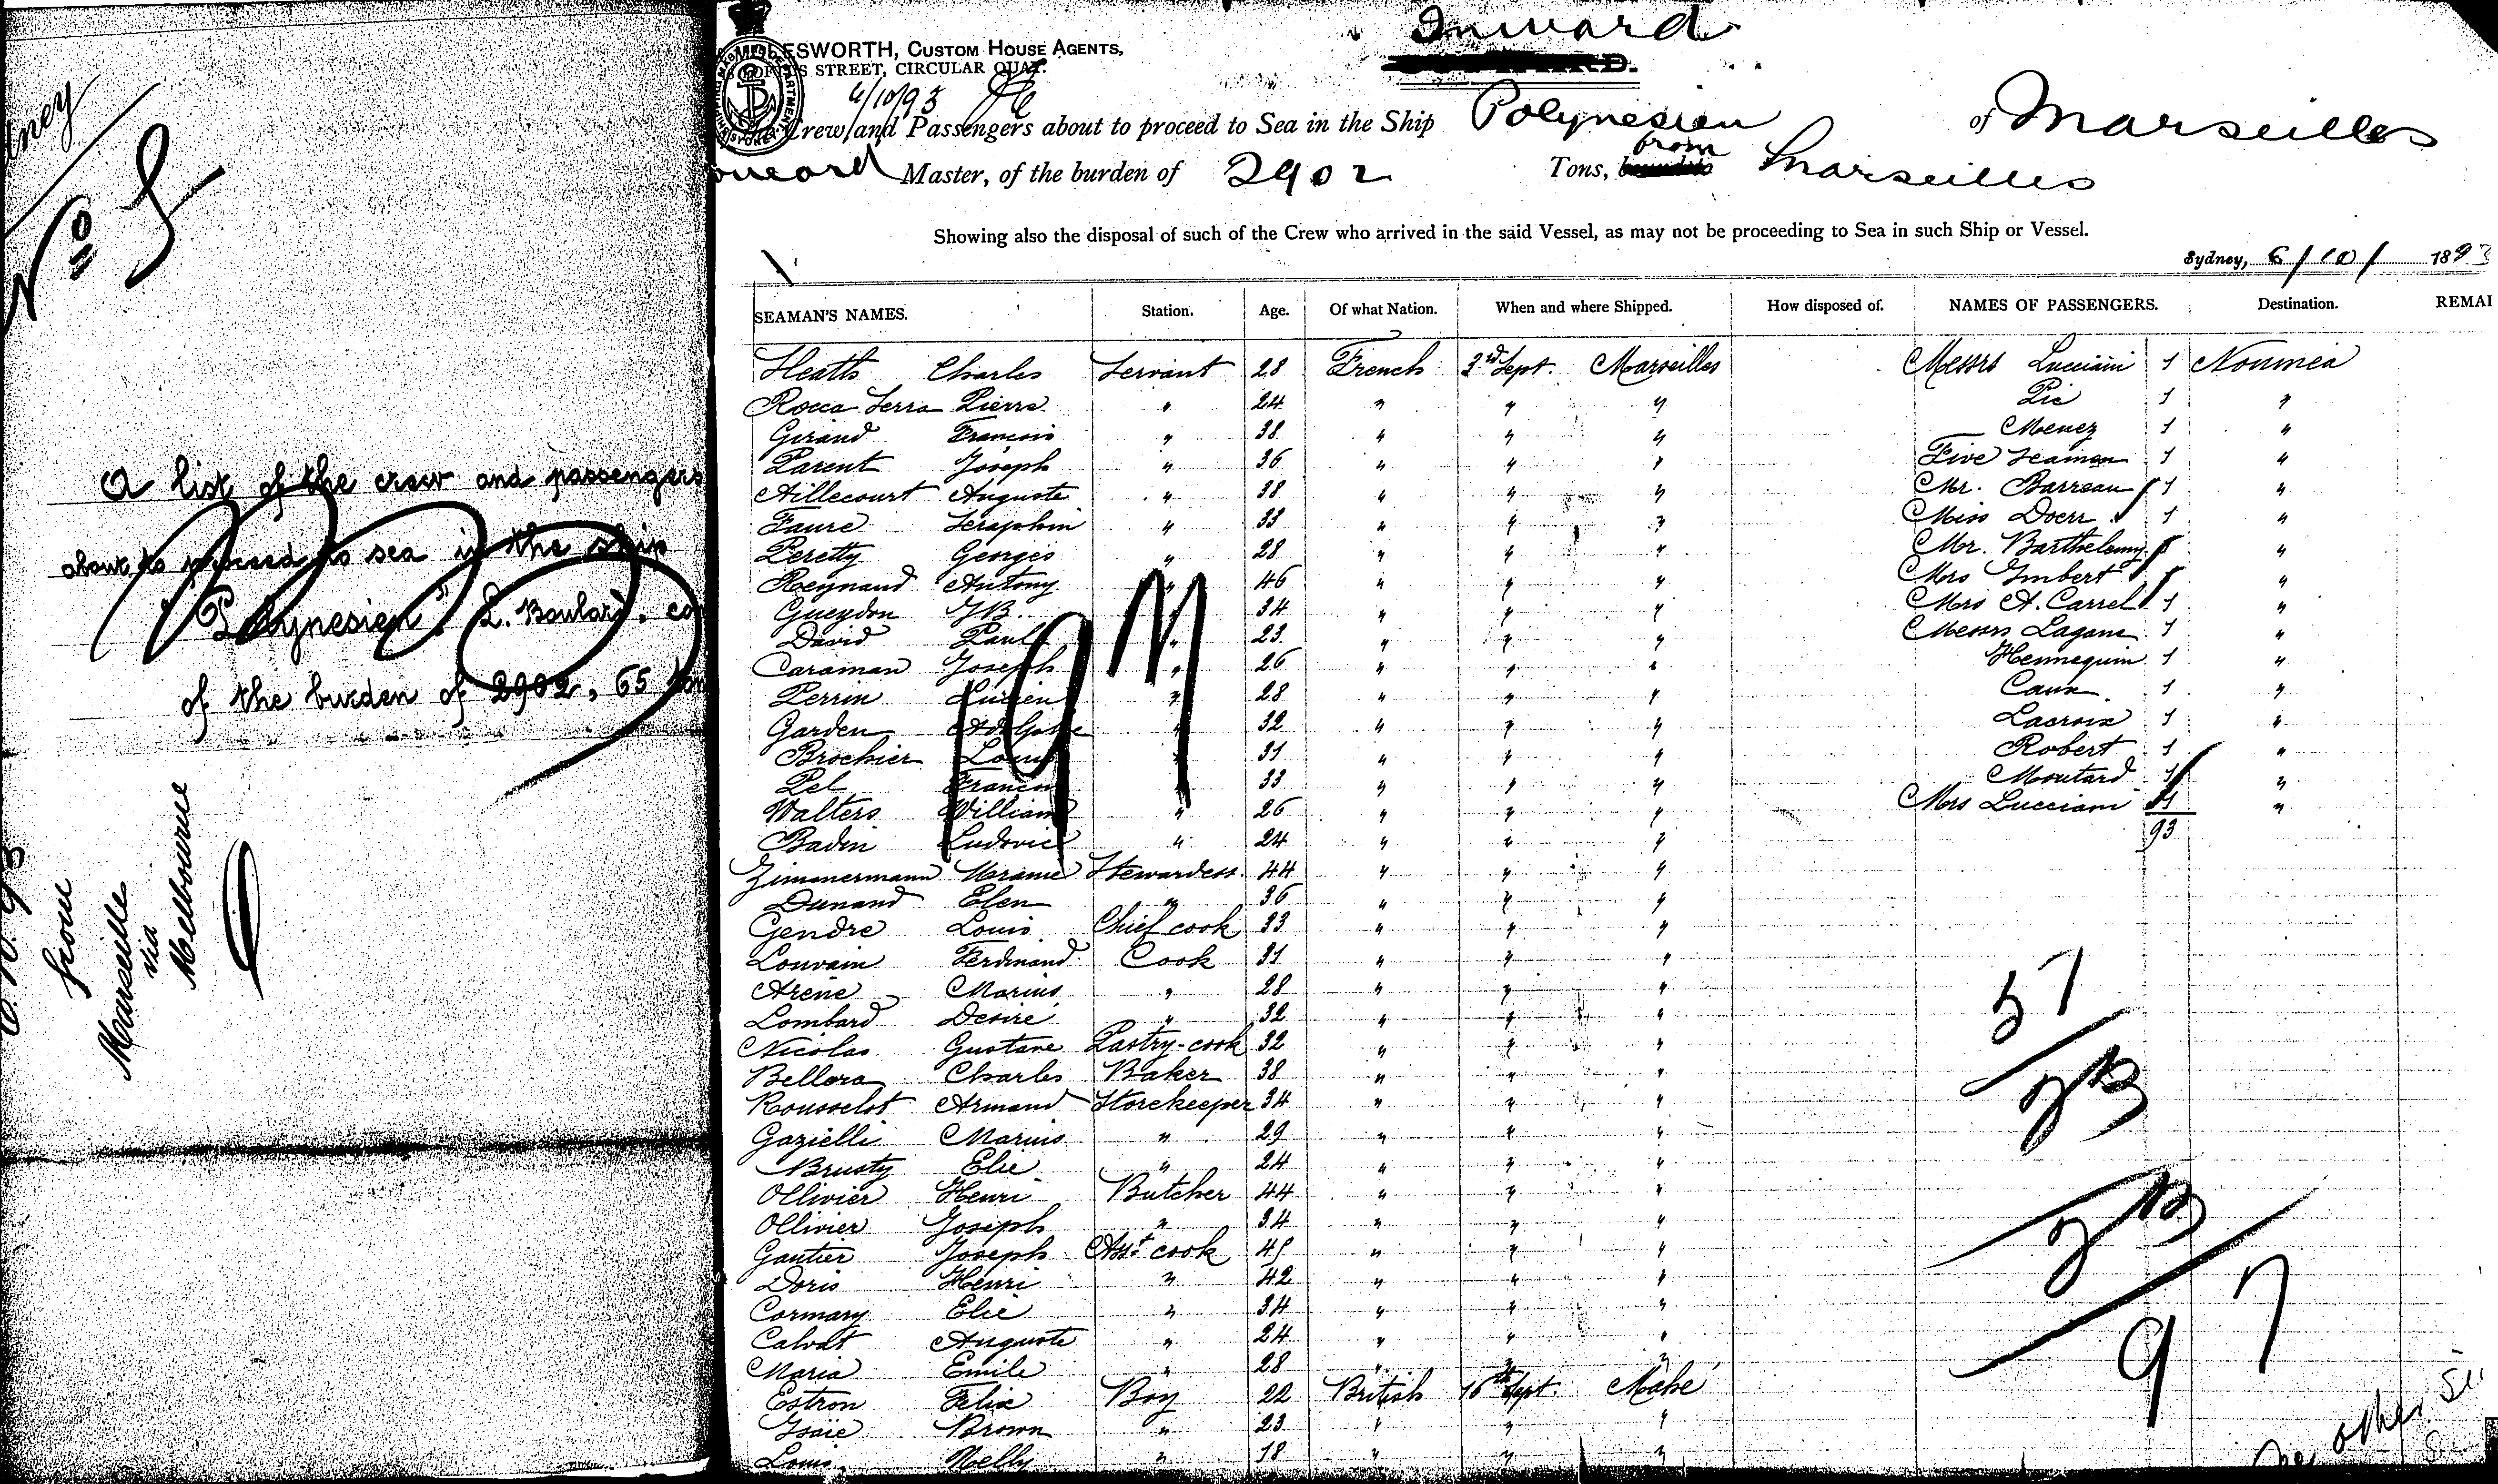 No 5
A list of the crew and passengers
about to proceed to sea in the ship
"Polynesien", L. Boulard,
of the burden of 2902, 65
from
Marseille
via
Melbourne
Inward
ESWORTH, CUSTOM HOUSE AGENTS,
STREET, CIRCULAR QUAY.
4/10/93
Crew and Passengers about to proceed to Sea in the Ship Polynesien of Marseilles
Master, of the burden of 2902 Tons, from Marseilles
Showing also the disposal of such of the Crew who arrived in the said Vessel, as may not be proceeding to Sea in such Ship or Vessel.
Sydney, 6/10/ 1893
SEAMAN'S NAMES. Station. Age. Of what Nation. When and where Shipped. How disposed of. NAMES OF PASSENGERS. Destination. REMAR
Heath Charles Servant 28 French 3rd Sept. Marseilles Messrs Lucciani 1 Noumea
Rocca Serra Pierre " 24 " " " Pic 1 "
Girand Francois " 38 " " " Menez 1 "
Parent Joseph " 36 " " " Five seamen 1 "
Aillecourt Auguste " 38 " " " Mr. Barreau 1 "
Faure Seraphin " 33 " " " Miss Doerr 1 "
Peretty Georges " 28 " " " Mr. Barthelemy 1 "
Reynaud Antony " 46 " " " Mrs Imbert 1 "
Gueydon J B. " 34 " " " Mrs A. Carrel 1 "
David Paul " 23 " " " Messrs Lagane 1 "
Caraman Joseph " 26 " " " Hennequin 1 "
Perrin Lucien " 28 " " " Caux 1 "
Garden Adolphe " 32 " " " Lacroix 1 "
Brochier Louis " 31 " " " Robert 1 "
Pel Francois 33 " " " Moutard 1 "
Walters William " 26 " " " Mrs Lucciani 1 "
Badin Ludovic " 24 " " " 93
Zimmermann Stewardess 44 " " "
Dunand Elen " 36 " " "
Gendre Louis Chief cook 33 " " "
Louvain Ferdinand Cook 31 " " "
Arene Marius " 28 " " "
Lombard Desire " 32 " " "
Nicolas Gustave Pastry-cook 32 " " "
Bellora Charles Baker 38 " " "
Rousselot Armand Storekeeper 34 " " "
Gazielli Marius " 29 " " "
Brusty Elie " 24 " " "
Ollivier Henri Butcher 44 " " "
Ollivier Joseph " 34 " " "
Gautier Joseph Asst cook 45 " " "
Doris Henri " 42 " " "
Cormary Elie " 34 " " "
Calvat Auguste " 24 " " "
Maria Emile " 28 " " "
Estron Felix Boy 22 British 16th Sept. Mahe
Isaie Brown " 23 " " "
Louis Nelly " 18 " " "
57
97
other